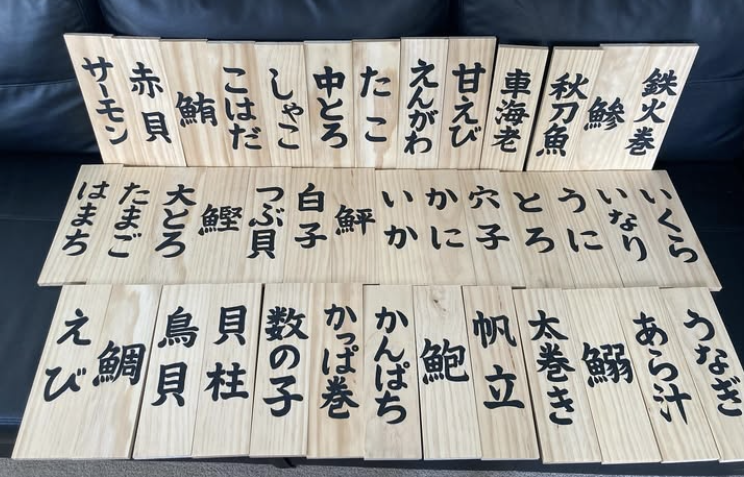 サーモン
赤貝
鮪
こはだ
しゃこ
中とろ
たこ
えんがわ
甘えび
車海老
秋刀魚
鯵
鉄火巻
はまち
たまご
大とろ
鰹
つぶ貝
白子
鮃
いか
かに
穴子
とろ
うに
いなり
いくら
えび
鯛
鳥貝
貝柱
数の子
かっぱ巻
かんぱち
鮑
帆立
太巻き
鰯
あら汁
うなぎ